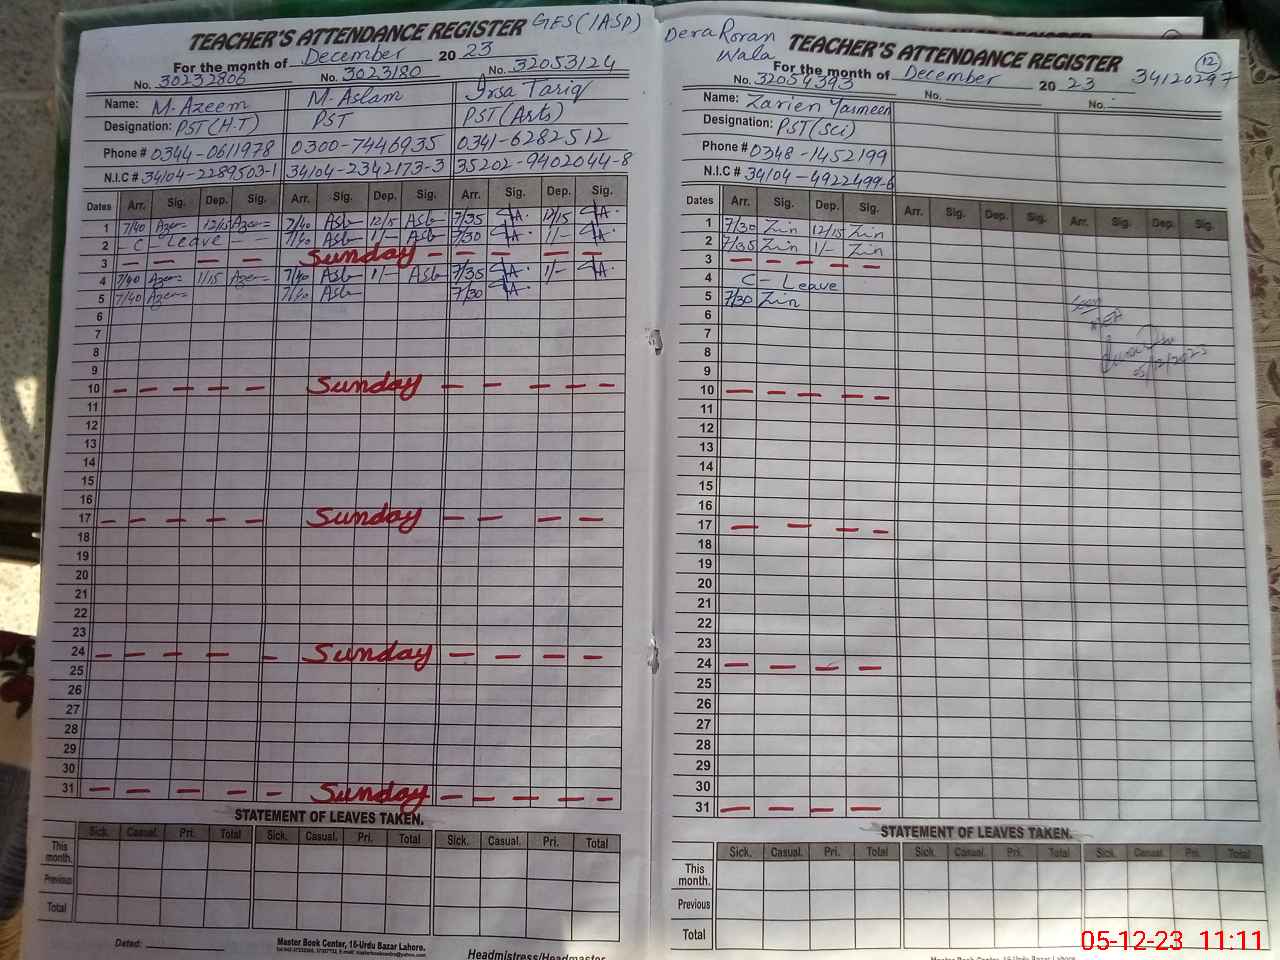 TEACHER'S ATTENDANCE REGISTER GES(IASP)
For the month of December 20 23
No. 30232806 No. 3023180 No. 32053124
Name: M. Azeem M. Aslam Irsa Tariq
Designation: PST(H.T) PST PST(Arts)
Phone # 0344-0611978 0300-7446935 0341-6282512
N.I.C # 34104-2289503-1 34104-2342173-3 35202-9402044-8
Dates Arr. Sig. Dep. Sig. Arr. Sig. Dep. Sig. Arr. Sig. Dep. Sig.
1 7/40 Azeem 12/15 Azeem 7/40 Asl 12/15 Asl 7/35 12/15
2 - C - Leave - - 7/40 Asl 1/- Asl 7/30 1/-
3 Sunday
4 7/40 Azeem 1/15 Azeem 7/40 Asl 1/- Asl 7/35 1/-
5 7/40 Azeem 7/40 Asl 7/30
6
7
8
9
10 Sunday
11
12
13
14
15
16
17 Sunday
18
19
20
21
22
23
24 Sunday
25
26
27
28
29
30
31 Sunday
STATEMENT OF LEAVES TAKEN.
Sick. Casual. Pri. Total Sick. Casual. Pri. Total Sick. Casual. Pri. Total
This month.
Previous
Total
Dated:
Master Book Center, 16-Urdu Bazar Lahore.
Headmistress/Headmaster
Dera Roran Wala
TEACHER'S ATTENDANCE REGISTER 12
For the month of December 20 23 34120297
No. 32054393 No. No.
Name: Zarien Yasmeen
Designation: PST(Sci)
Phone # 0348-1452199
N.I.C # 34104-4922499-6
Dates Arr. Sig. Dep. Sig. Arr. Sig. Dep. Sig. Arr. Sig. Dep. Sig.
1 7/30 Zin 12/15 Zin
2 7/35 Zin 1/- Zin
3
4 C - Leave
5 7/30 Zin
6
7
8
9
5/12/2023
10
11
12
13
14
15
16
17
18
19
20
21
22
23
24
25
26
27
28
29
30
31
STATEMENT OF LEAVES TAKEN.
Sick. Casual. Pri. Total Sick. Casual. Pri. Total Sick. Casual. Pri. Total
This month.
Previous
Total
Master Book Center, 16-Urdu Bazar Lahore.
05-12-23 11:11